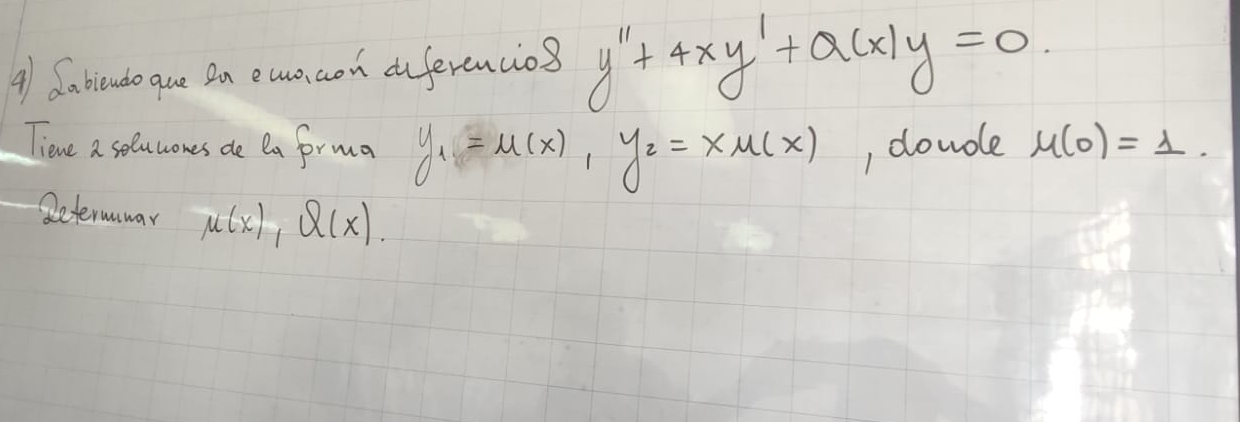 4) Sabiendo que la ecuación diferencial y'' + 4xy' + Q(x)y = 0.
Tiene 2 soluciones de la forma y₁ = μ(x), y₂ = xμ(x), donde μ(0) = 1.
Determinar μ(x), Q(x).